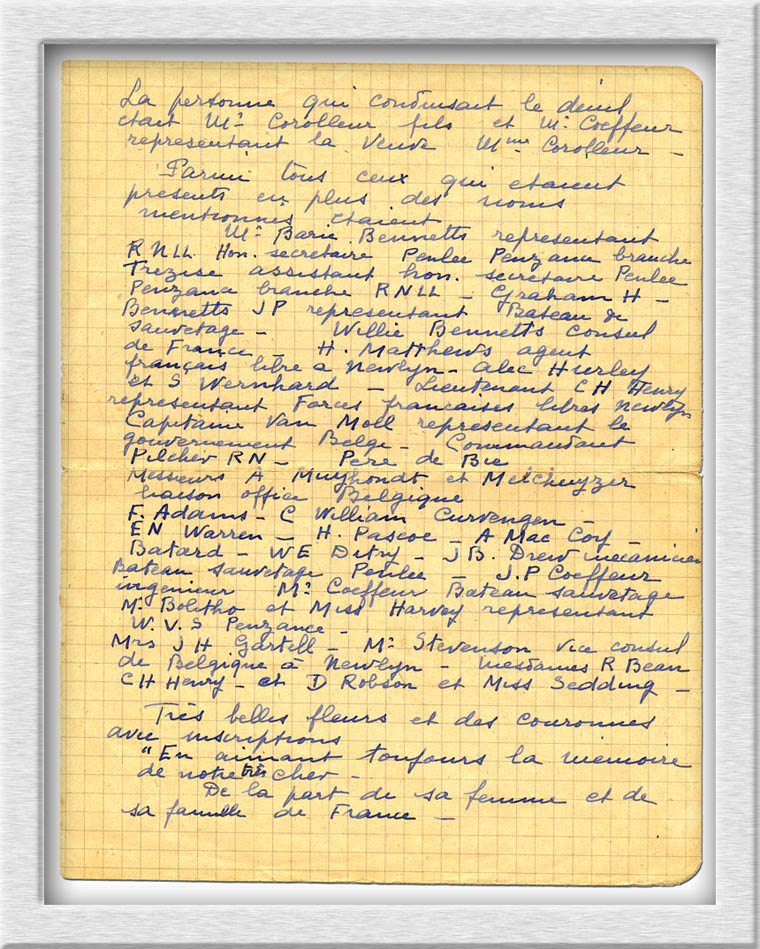 La personne qui conduisait le deuil
etait Mr Corolleur fils et Mr Coeffeur
representant la Veuve Mme Corolleur —
Parmi tous ceux qui etaient
presents en plus des noms
mentionnés etaient
Mr Barie Bennetts representant
RNLL Hon. secretaire Penlee Penzance branche
Trezise assistant hon. secretaire Penlee
Penzance branche RNLL — Graham H —
Bennetts JP representant Bateau de
sauvetage — Willie Bennetts consul
de France — H. Matthews agent
français libre a Newlyn — Alec Hurley
et S Wernhard — Lieutenant CH Henry
representant Forces françaises libres Newlyn
Capitaine Van Moll representant le
gouvernement Belge — Commandant
Pilcher RN — Pere de Bie
Messieurs A Muyhondt et Melchuyzer
liaison office Belgique
F. Adams — C William Curvengen —
EN Warren — H. Pascoe — A Mac Coy —
Batard — WE Ditry — J B. Drew mecanicien
Bateau sauvetage Penlee — J.P Coeffeur
ingenieur Mr Coeffeur Bateau sauvetage
Mr Bolitho et Miss Harvey representant
W.V.S Penzance —
Mrs J H Gartell — Mr Stevenson Vice consul
de Belgique à Newlyn — Mesdames R Bean
CH Henry — et D Robson et Miss Sedding —
Très belles fleurs et des couronnes
avec inscriptions
"En aimant toujours la memoire
de notre très cher —
De la part de sa femme et de
sa famille de France —